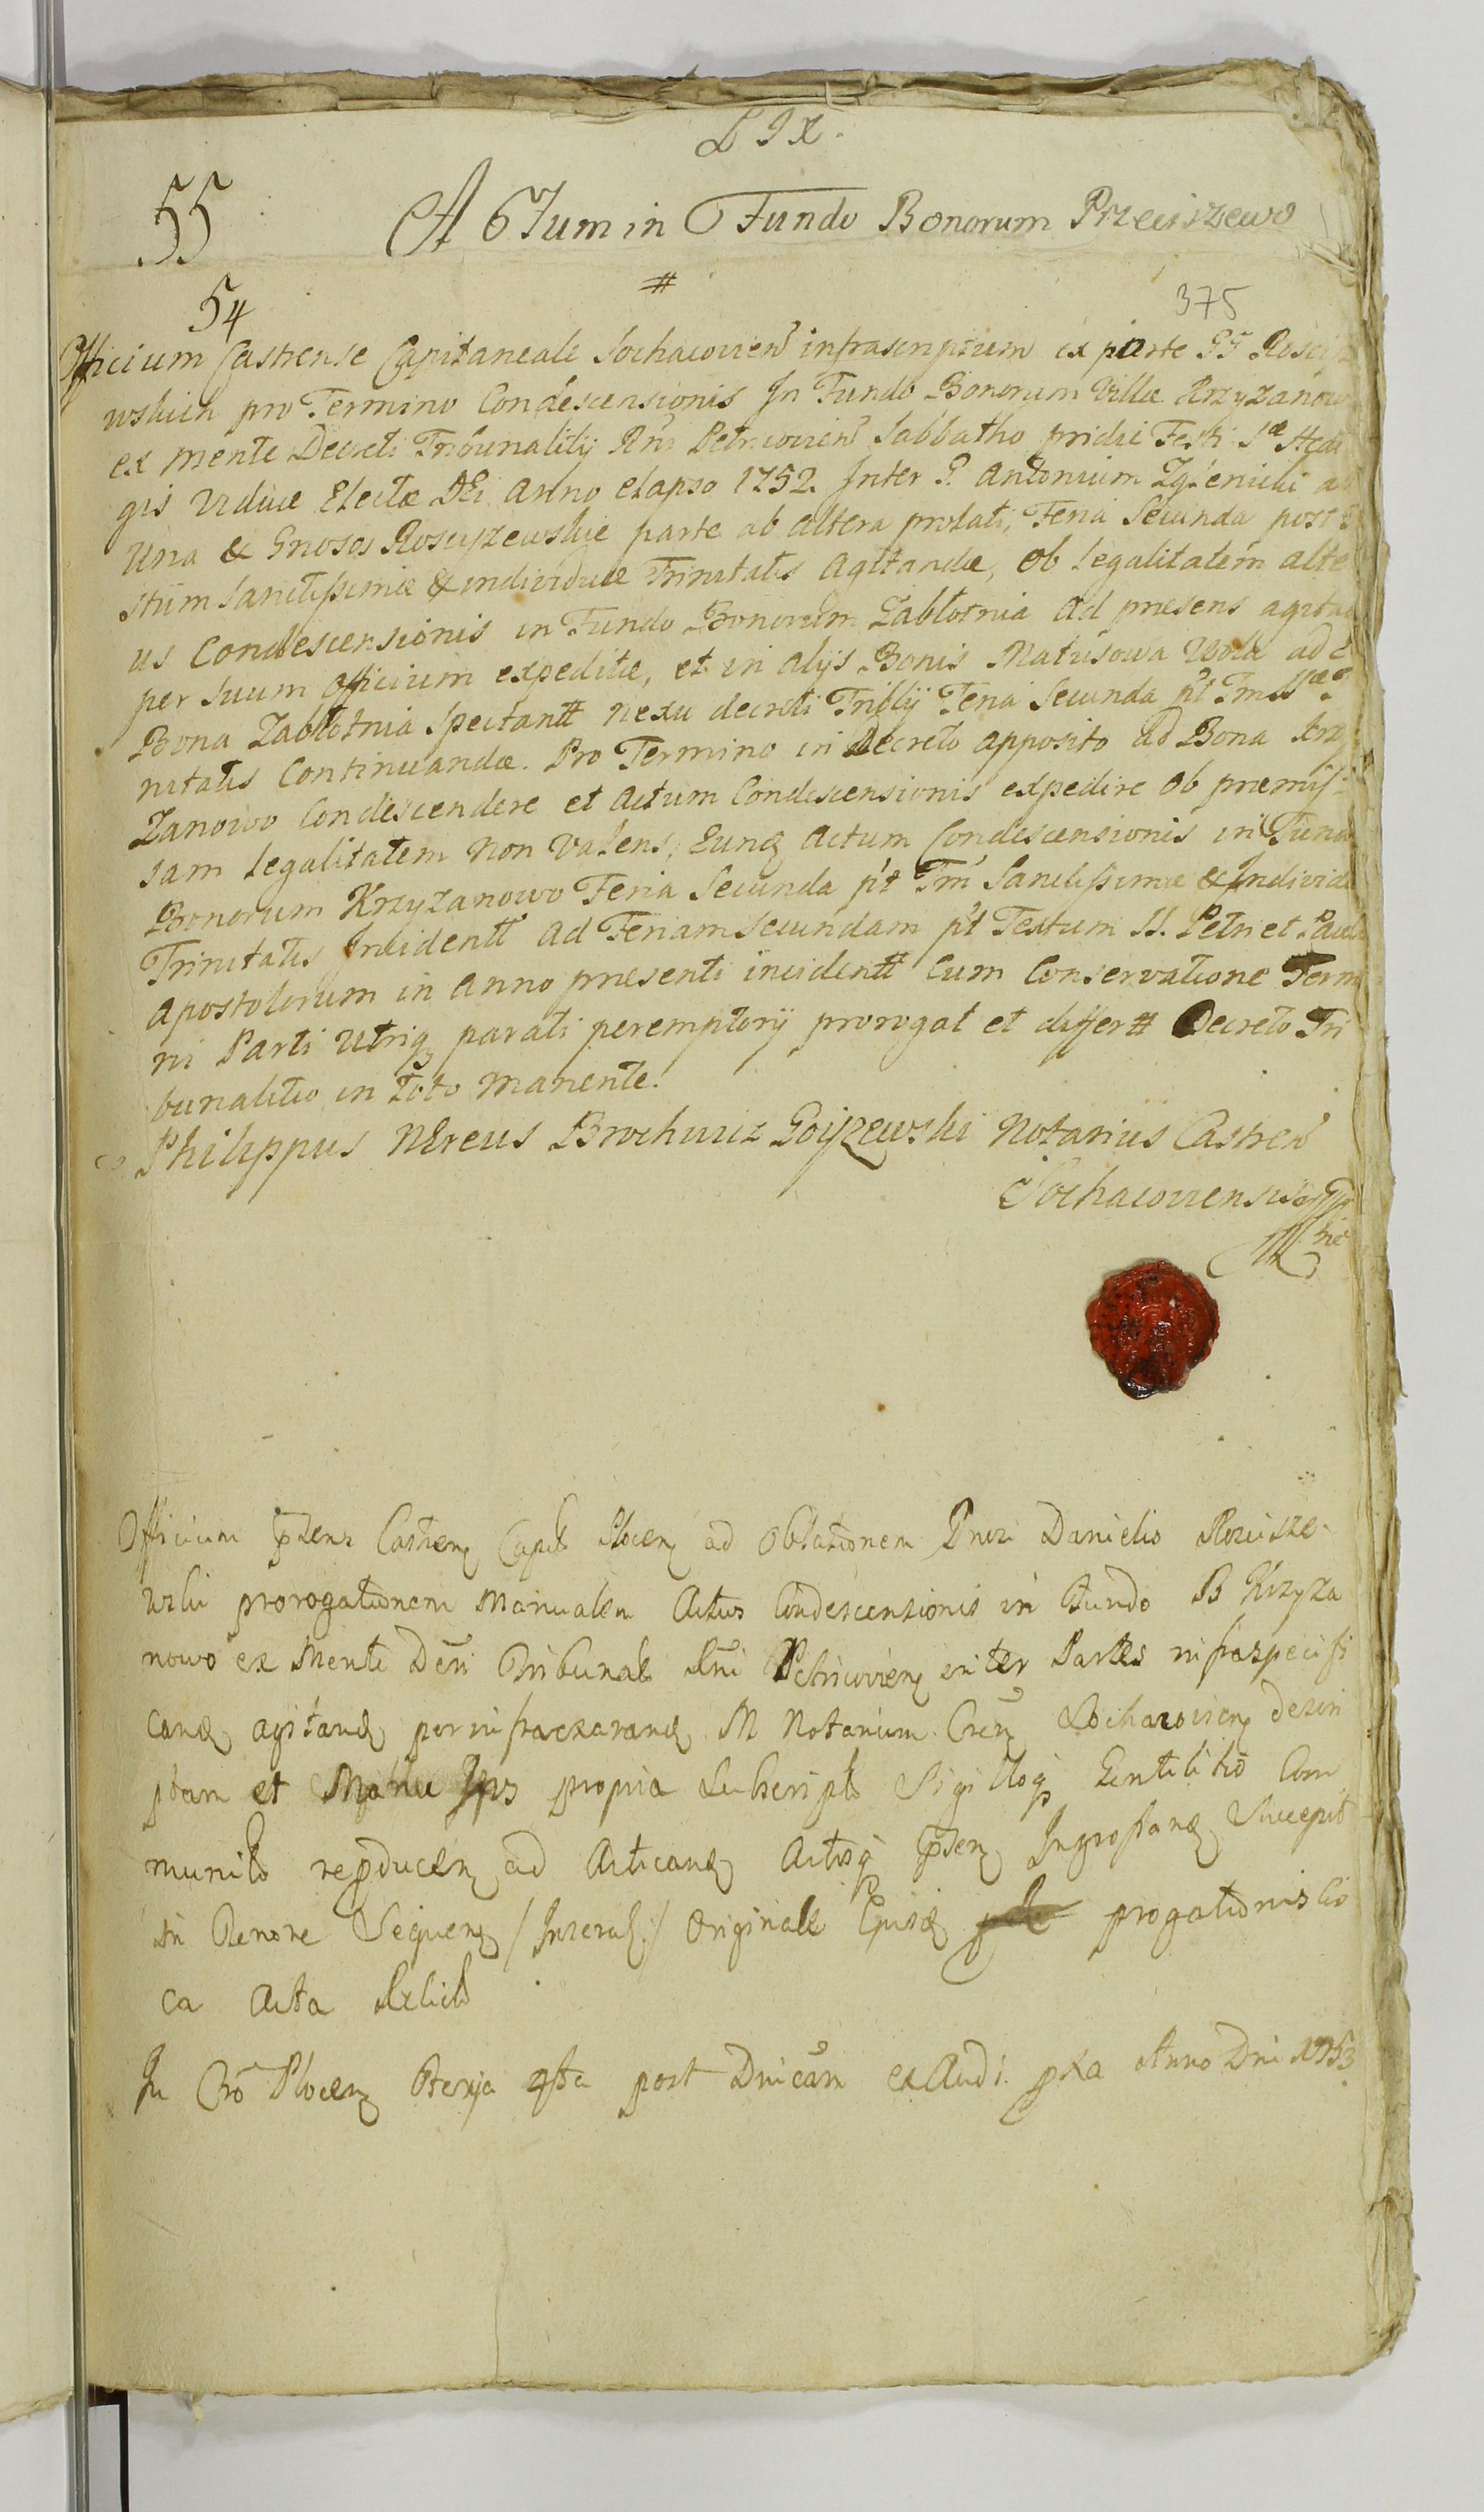 L I X.
55
ACTum in Fundo Bonorum Przeciszewo
#
54
375
Officium Castrense Capitaneale Sochacovien infrascriptum ex parte GG Roscisz
wskich pro Termino Condescensionis In Fundo Bonorum Villæ Krzyzanow
ex mente Decreti Tribunalitij Rni Petricovien Sabbatho pridie Festi Sæ Hedi
gis Viduæ Electæ DEi Anno elapso 1752. Inter G. Antonium Zglenicki ab
Una & Gnosos Rosciszewskie parte ab altera prolati, Feria Secunda post
stum Sanctissimæ & individuæ Trinitatis Agitandæ, ob legalitatem alte
us Condescensionis in Fundo Bonorum Zabłotnia ad præsens agitan
per suum officium expeditæ, et in alijs Bonis Matusowa Wola ad
Bona Zabłotnia Spectantt nexu decreti Triblij Feria Secunda pt Fm SSæ
nitatis Continuandæ. Pro Termino in Decreto apposito ad Bona Krzy
Zanowo Condescendere et Actum Condescensionis expedire ob præmis
sam legalitatem non valens, Eunq Actum Condescensionis in Fundo
Bonorum Krzyzanowo Feria Secunda pt Fm Sanctissimæ & Individu
Trinitatis Incidentt ad Feriam Secundam pt Festum SS. Petri et Pauli
Apostolorum in Anno præsenti incidentt Cum Conservatione Termi
ni Parti Utriq parati peremptorij prorogat et differtt Decreto Tri
bunalitio in toto manente.
Philippus NEreus Brochwicz Goyzewski Notarius Castren
Sochacoviensis
Officium præns Castren Capit Plocen ad Oblationem Gnosi Danielis Roscisze
wski prorogationem Manualem Actus Condescensionis in Fundo B Krzyza
nowo ex Mente Dcri Tribunal Rni Petricovien inter Partes infraspecifi
cand agitand per infraexarand M Notarium Cren Sochacovien descri
ptam et Manu Ips propria Subscript Sigilloq Gentilitio Com
munit repducen ad Acticand Actisq præn Ingrossand Suscepit
in Tenore Sequen / Inserat / Originale Ejusd progationis cir
ca Acta Relict
In Cro Plocen Feria 4ta post Dnicam exaudi pxa Anno Dni 1753